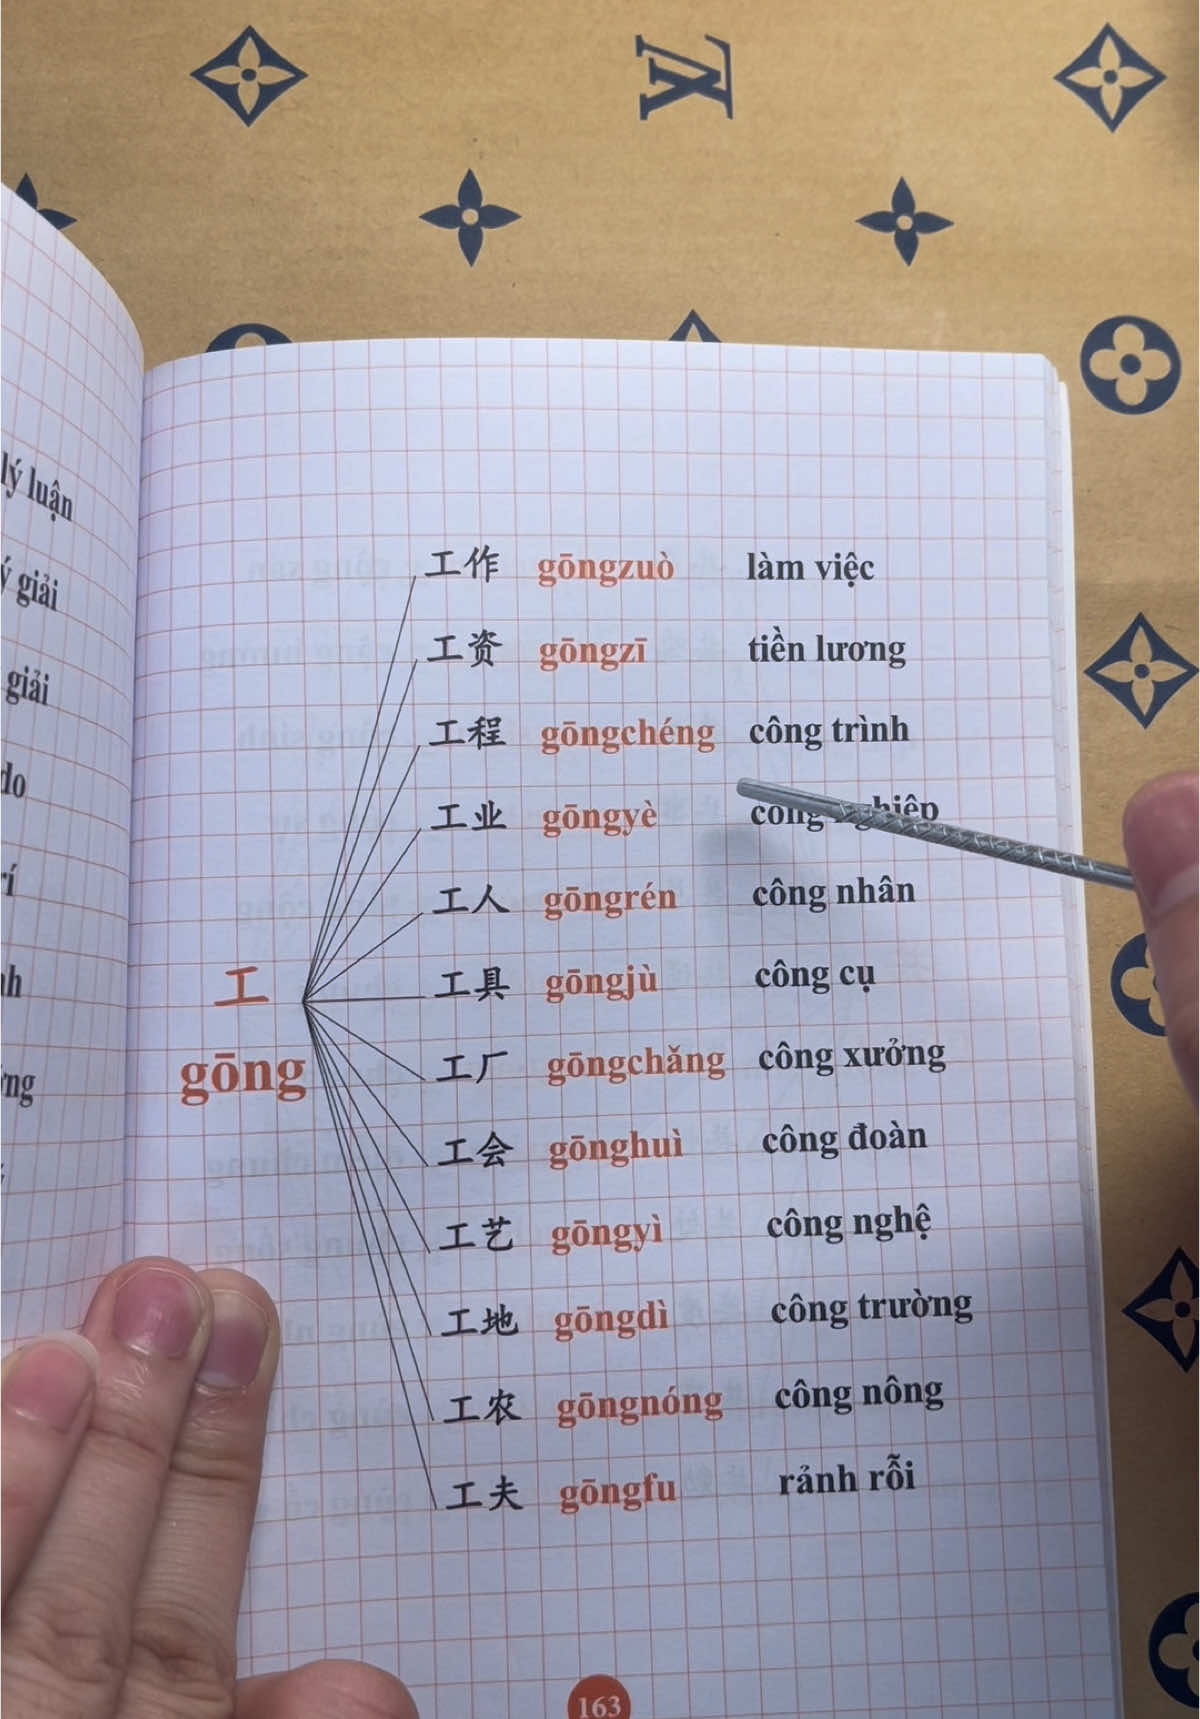 lý luận
giải
giải
工作 gōngzuò làm việc
工资 gōngzī tiền lương
工程 gōngchéng công trình
工业 gōngyè công nghiệp
工人 gōngrén công nhân
工具 gōngjù công cụ
工厂 gōngchǎng công xưởng
工会 gōnghuì công đoàn
工艺 gōngyì công nghệ
工地 gōngdì công trường
工农 gōngnóng công nông
工夫 gōngfu rảnh rỗi
工
gōng
163